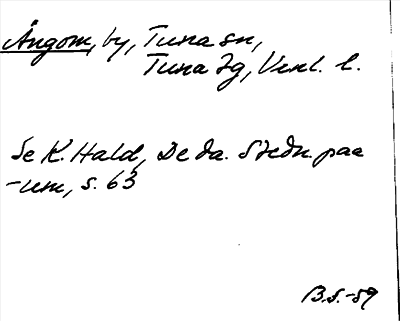 Ångom, by, Tuna sn,
Tuna tg, Vnl. l.
Se K. Hald, De da. Stedn. paa
-um, s. 63
B.S. -59